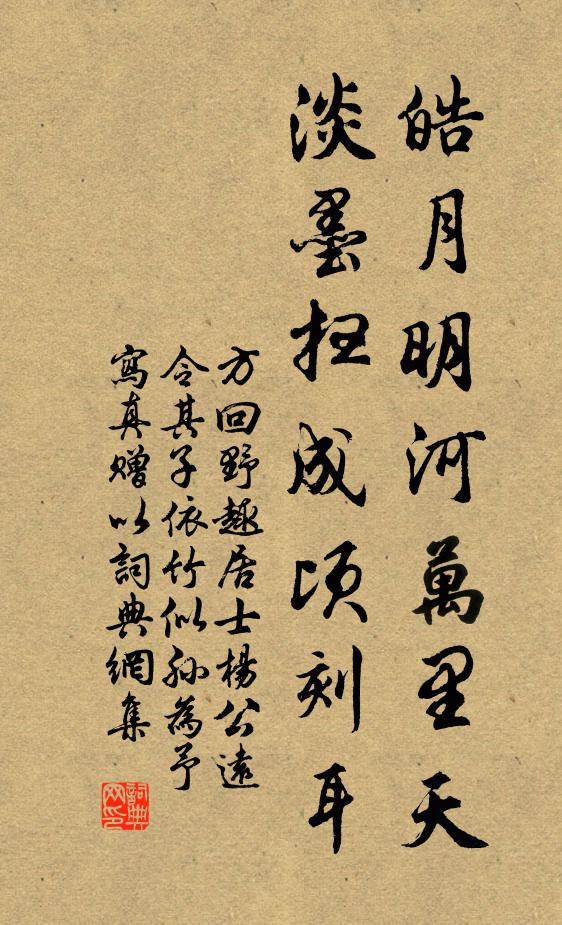 皓月明河萬里天
淡墨扫成頃刻耳
方回野趣居士楊公遠
令其子依竹似孫為予
寫真贈以詞典網集
詞典
网印